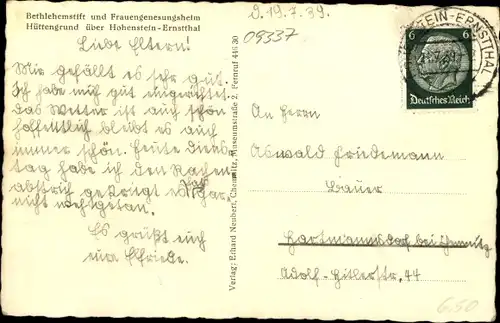 Bethlehemstift und Frauengenesungsheim
Hüttengrund über Hohenstein-Ernstthal
Liebe Eltern!
Mir gefällt es sehr gut.
Ich habe mich gut eingerichtet
das Wetter ist auch schön
hoffentlich bleibt es auch
immer schön. Heute diens-
tag habe ich den Rachen
abstrich gekriegt es hat gar
nicht wehgetan.
Es grüßt euch
eure Elfriede.
Verlag: Erhard Neubert, Chemnitz, Museumstraße 2, Fernruf 446 30
d. 19.7.39.
09337
STEIN-ERNSTTHAL
6 6
Deutsches Reich
An Herrn
Oswald Friedemann
Bauer
Hartmannsdorf bei Chemnitz
Adolf-Hitlerstr. 44
6.50